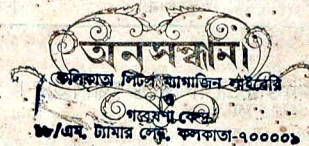 অনুসন্ধান।
কলিকাতা লিটল ম্যাগাজিন লাইব্রেরি
ও
গবেষণা কেন্দ্র
১৮/এম, ট্যামার লেন, কলকাতা-৭০০০০৯